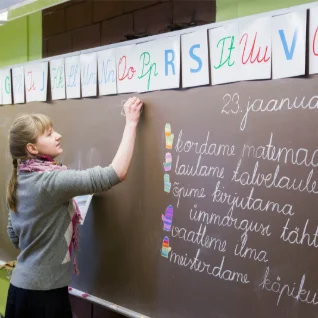 Oo Pp R S Tt Uu V
23. jaanua
kordame matemaa
laulame talvelaule
õpime kirjutama
ümmargusi täht
vaatleme ilma
meisterdame käpiku